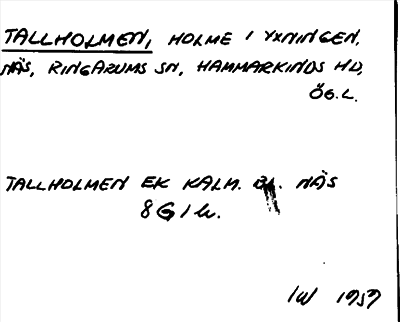 TALLHOLMEN, HOLME I YXNINGEN,
NÄS, RINGARUMS SN, HAMMARKINDS HD,
ÖG.L.
TALLHOLMEN EK KALM. BL. NÄS
8 G 1 h.
IW 1959